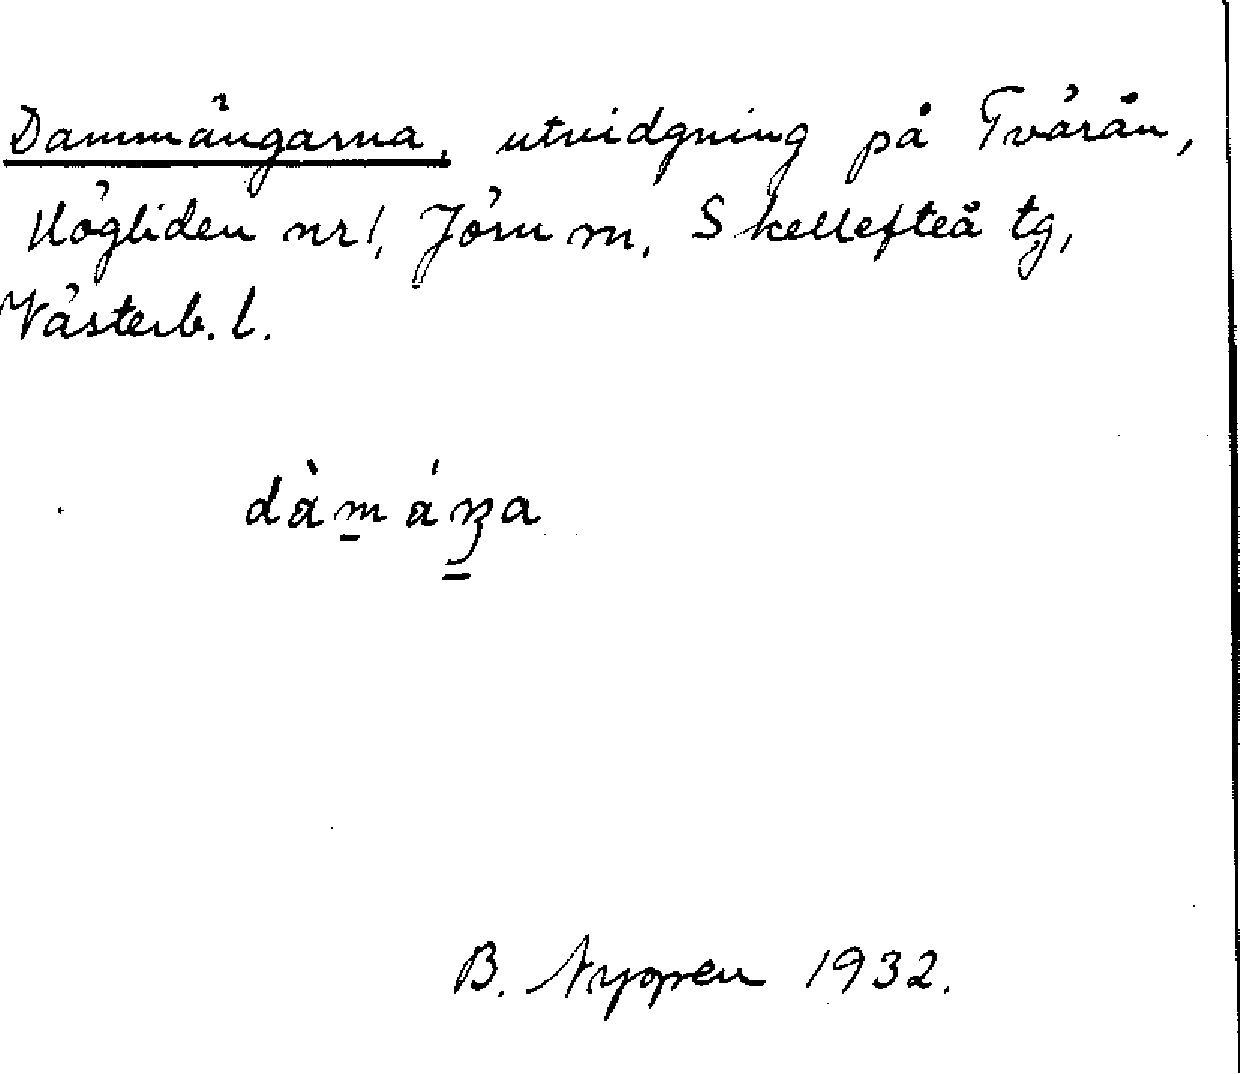 Dammängarna, utvidgning på Tvärån,
Högliden nr 1, Jörn m. Skellefteå tg,
Västerb. l.
dàmáŋa
B. Nyppen 1932.